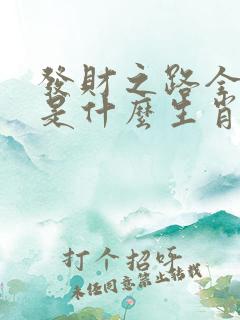 發財之路全
是什麼生肖
打个招呼
未经同意禁止转载